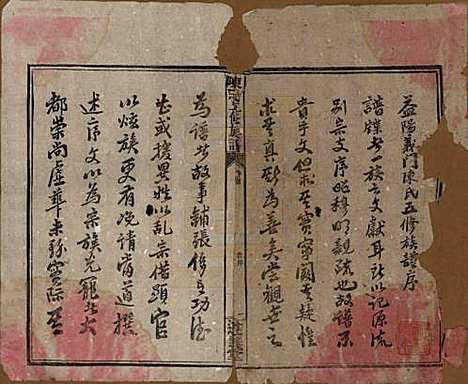 益陽義門陳氏五修族譜序
譜牒者一族之文獻耳所以記源流
別宗支序昭穆明親疏也故譜不
貴乎文但求其實寧闕其疑惟
求其真斯為善矣嘗觀世之
陳氏五修族譜
為譜者故事鋪張侈言功德
甚或援異姓以亂宗借顯宦
以炫族更有浼請當道撰
述序文以為宗族光寵此大
都崇尚虛華未務實際